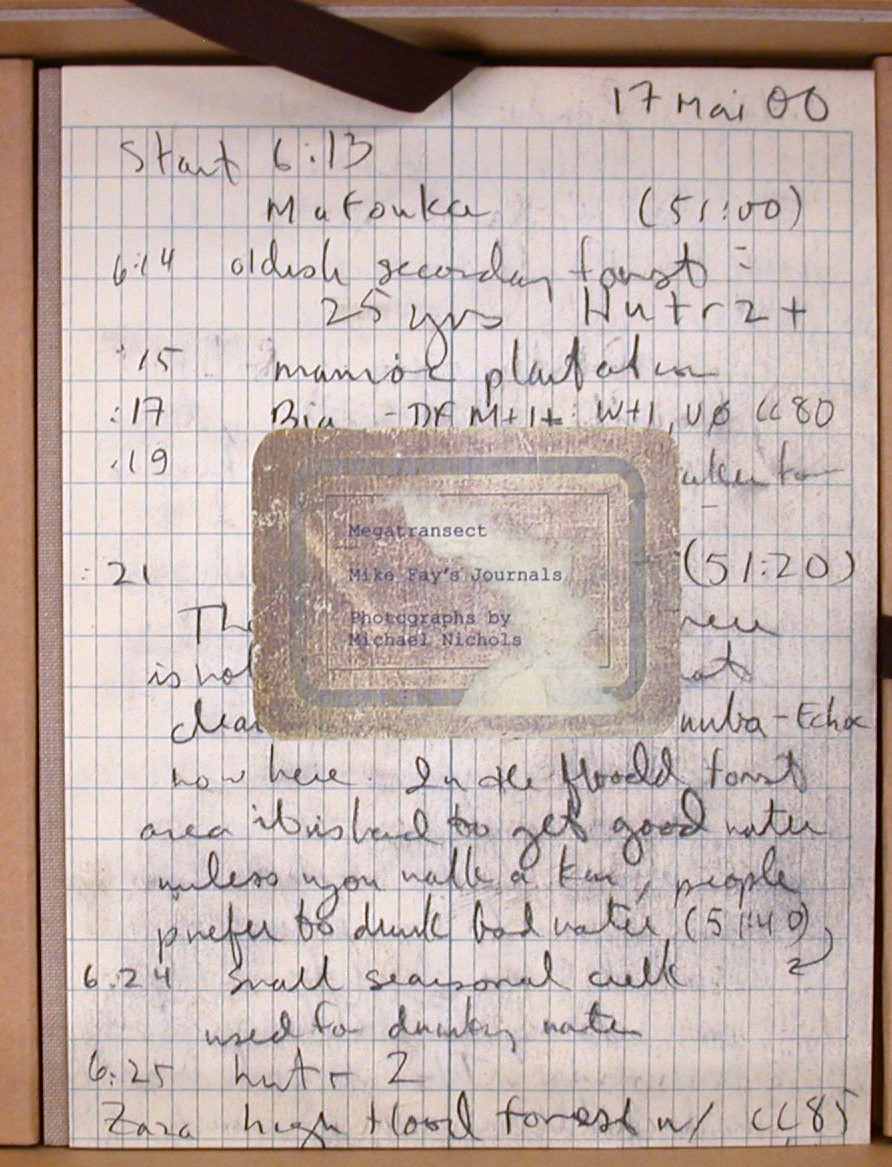 17 Mai 00
Start 6:13
Mafouka (51:00)
6:14 oldish secondary forest =
25 yrs Hutr 2+
:15 manioc plantation
:17 Big - DF M+1+: W+1, UØ CC 80
:19
:21 (51:20)
is not
clear -Echa
now here. In the floodd forest
area it is hard to get good water
unless u you walk a km, people
prefer to drink bad water (51:40)
2
6:24 small seasonal creek
used for drinking water
6:25 hutr 2
high flood forest w/ CC 85
Megatransect
Mike Fay's Journals
Photographs by
Michael Nichols